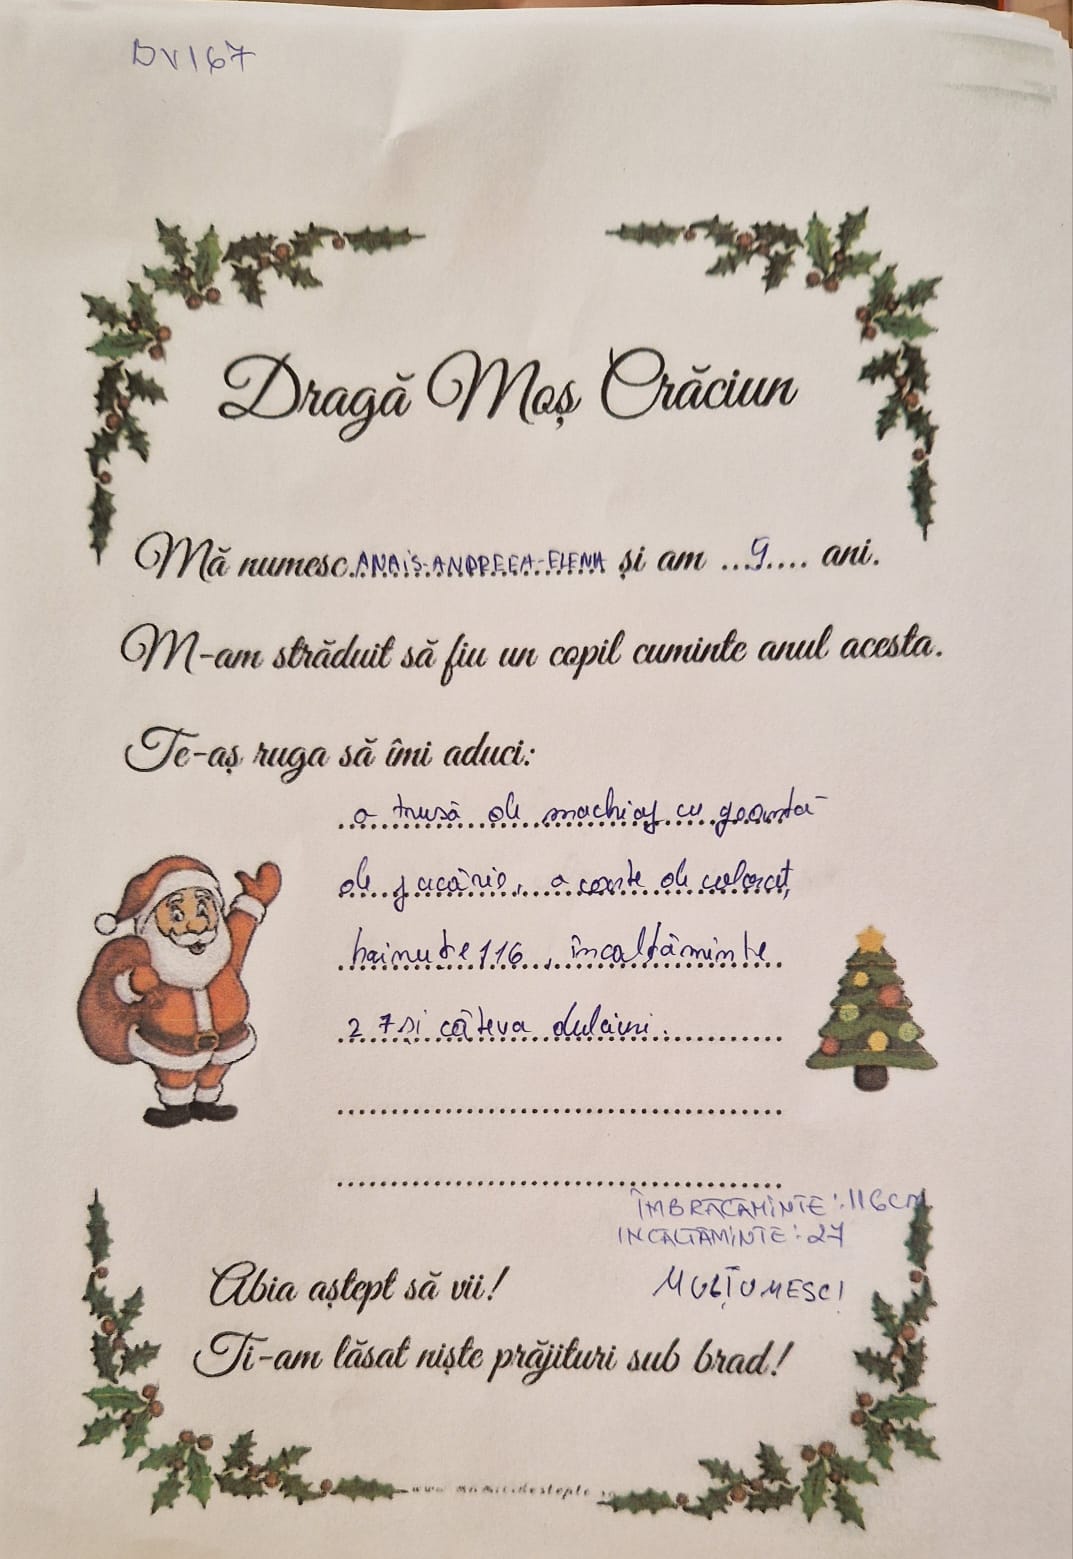 DV167
Dragă Moș Crăciun
Mă numesc ANAIS-ANDREEA-ELENA și am ...9.... ani.
M-am străduit să fiu un copil cuminte anul acesta.
Te-aș ruga să îmi aduci:
o trusă de machiaj cu geantă
de jucărie, o carte de colorat,
hăinuțe 116, încălțăminte
27 și câteva dulciuri.
ÎMBRĂCĂMINTE: 116CM
INCĂLȚĂMINTE: 27
MULȚUMESC!
Abia aștept să vii!
Ti-am lăsat niște prăjituri sub brad!